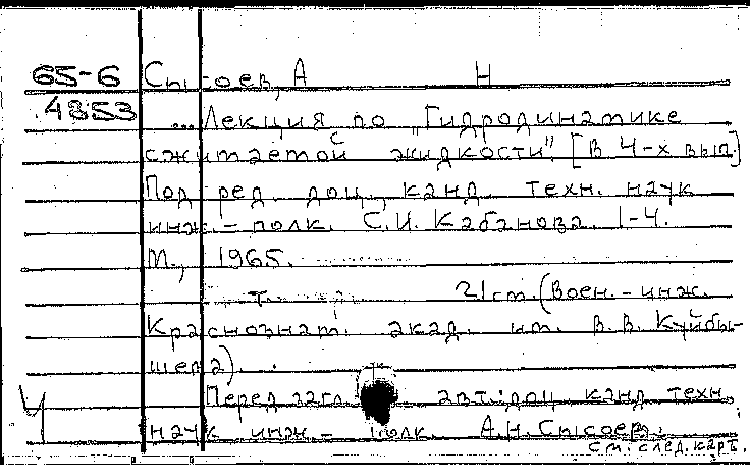 65-6 Сысоев, А Н
4853 ... Лекция по „Гидродинамике
сжимаемой жидкости". [В 4-х вып.]
Под ред. доц., канд. техн. наук
инж.-полк. С.И. Кабанова. 1-4.
М., 1965.
т. 21 см. (Воен.-инж.
Краснознам. акад. им. В.В. Куйбы-
шева).
Перед загл. авт: доц. канд техн
4 наук инж- полк. А.Н. Сысоев.
см. след. карт.